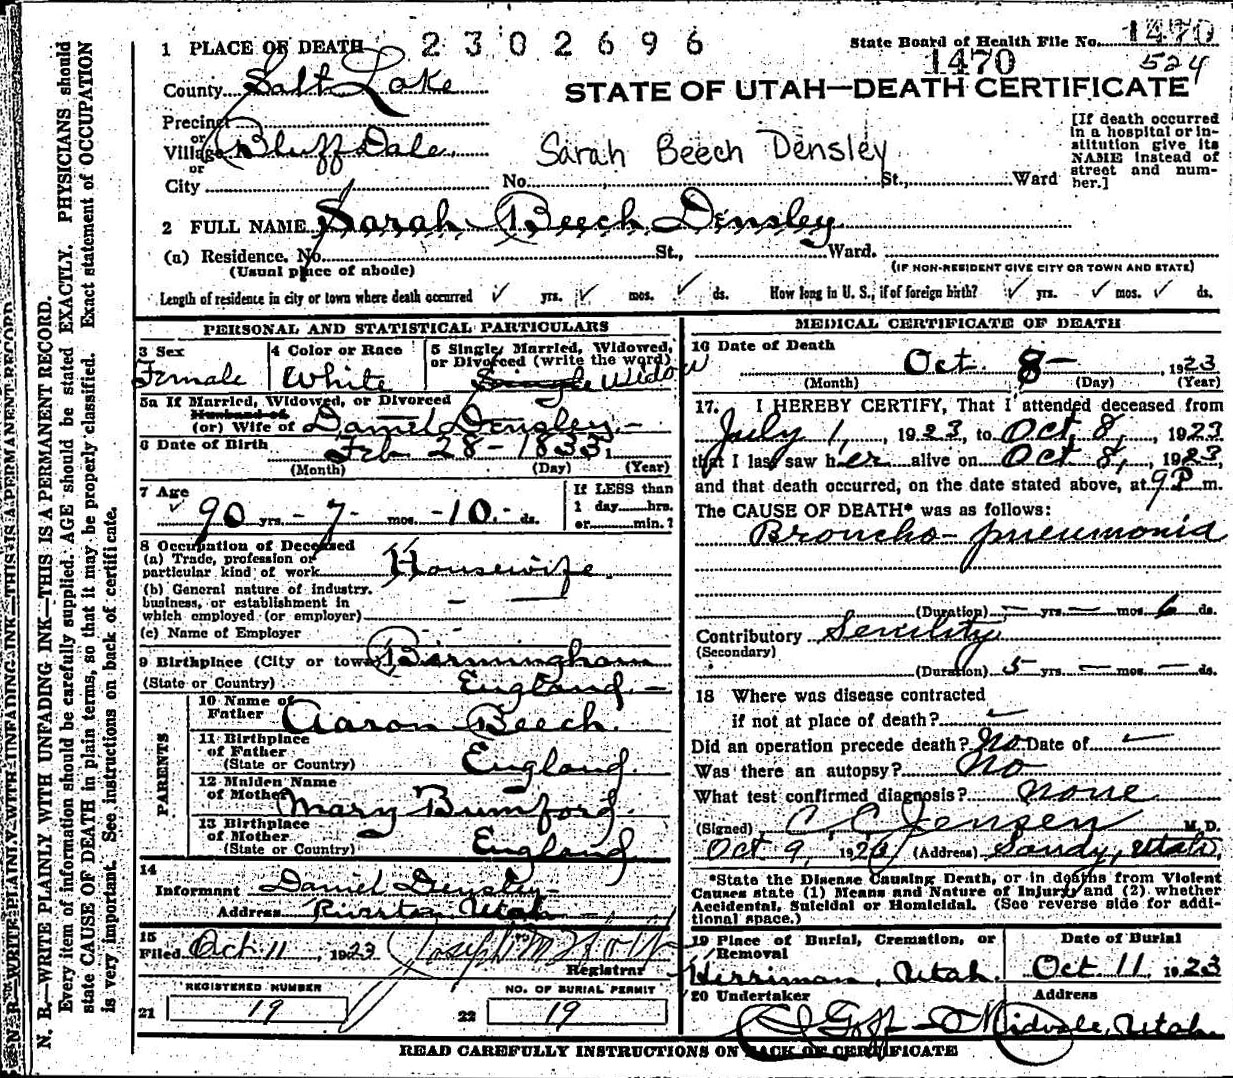 N. B.—WRITE PLAINLY WITH UNFADING INK—THIS IS A PERMANENT RECORD.
Every item of information should be carefully supplied. AGE should be stated EXACTLY. PHYSICIANS should
state CAUSE OF DEATH in plain terms, so that it may be properly classified. Exact statement of OCCUPATION
is very important. See instructions on back of certificate.
1 PLACE OF DEATH 2302696
State Board of Health File No. 1470
1470 524
County Salt Lake
STATE OF UTAH—DEATH CERTIFICATE
Precinct
or
Village Bluff Dale
or
Sarah Beech Densley
[If death occurred
in a hospital or in-
stitution give its
NAME instead of
street and num-
ber.]
City No. St., Ward
2 FULL NAME Sarah Beech Densley
(a) Residence. No. St., Ward.
(Usual place of abode) (IF NON-RESIDENT GIVE CITY OR TOWN AND STATE)
Length of residence in city or town where death occurred ✓ yrs. ✓ mos. ✓ ds. How long in U. S., if of foreign birth? ✓ yrs. ✓ mos. ✓ ds.
PERSONAL AND STATISTICAL PARTICULARS
3 Sex
Female
4 Color or Race
White
5 Single, Married, Widowed,
or Divorced (write the word)
Single Widow
5a If Married, Widowed, or Divorced
Husband of
(or) Wife of Daniel Densley
6 Date of Birth Feb 28 - 1833
(Month) (Day) (Year)
7 Age
✓ 90 yrs. - 7 - mos. - 10 - ds.
If LESS than
1 day hrs.
or min.?
8 Occupation of Deceased
(a) Trade, profession or
particular kind of work Housewife
(b) General nature of industry,
business, or establishment in
which employed (or employer) —
(c) Name of Employer
9 Birthplace (City or town) Birmingham
(State or Country) England
PARENTS
10 Name of
Father Aaron Beech
11 Birthplace
of Father
(State or Country) England
12 Maiden Name
of Mother Mary Bumford
13 Birthplace
of Mother
(State or Country) England
14
Informant Daniel Densley
Address Utah
15
Filed Oct 11, 1923
Registrar
REGISTERED NUMBER
21 19
NO. OF BURIAL PERMIT
22 19
MEDICAL CERTIFICATE OF DEATH
16 Date of Death
Oct. 8 - , 1923
(Month) (Day) (Year)
17. I HEREBY CERTIFY, That I attended deceased from
July 1, , 1923, to Oct. 8, , 1923
that I last saw her alive on Oct 8, , 1923,
and that death occurred, on the date stated above, at 9 P. m.
The CAUSE OF DEATH* was as follows:
Broncho-pneumonia
(Duration) — yrs. — mos. 6 ds.
Contributory Senility
(Secondary)
(Duration) 5 yrs. — mos. — ds.
18 Where was disease contracted
if not at place of death? ✓
Did an operation precede death? No Date of ✓
Was there an autopsy? No
What test confirmed diagnosis? none
(Signed) C. C. Jensen M. D.
Oct 9, 1923 (Address) Sandy, Utah
*State the Disease Causing Death, or in deaths from Violent
Causes state (1) Means and Nature of Injury; and (2) whether
Accidental, Suicidal or Homicidal. (See reverse side for addi-
tional space.)
19 Place of Burial, Cremation, or
Removal
Herriman, Utah
Date of Burial
Oct. 11, 1923
20 Undertaker Address
Goff Midvale, Utah
READ CAREFULLY INSTRUCTIONS ON BACK OF CERTIFICATE